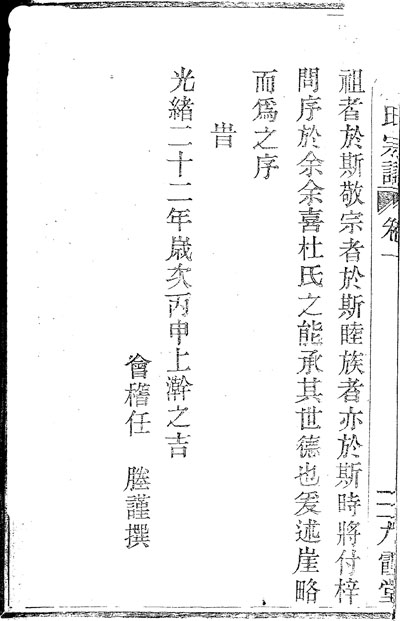 氏宗譜 卷一
祖者於斯敬宗者於斯睦族者亦於斯時將付梓
問序於余余喜杜氏之能承其世德也爰述崖略
而為之序
旹
光緒二十二年歲次丙申上澣之吉
會稽任 塍謹撰